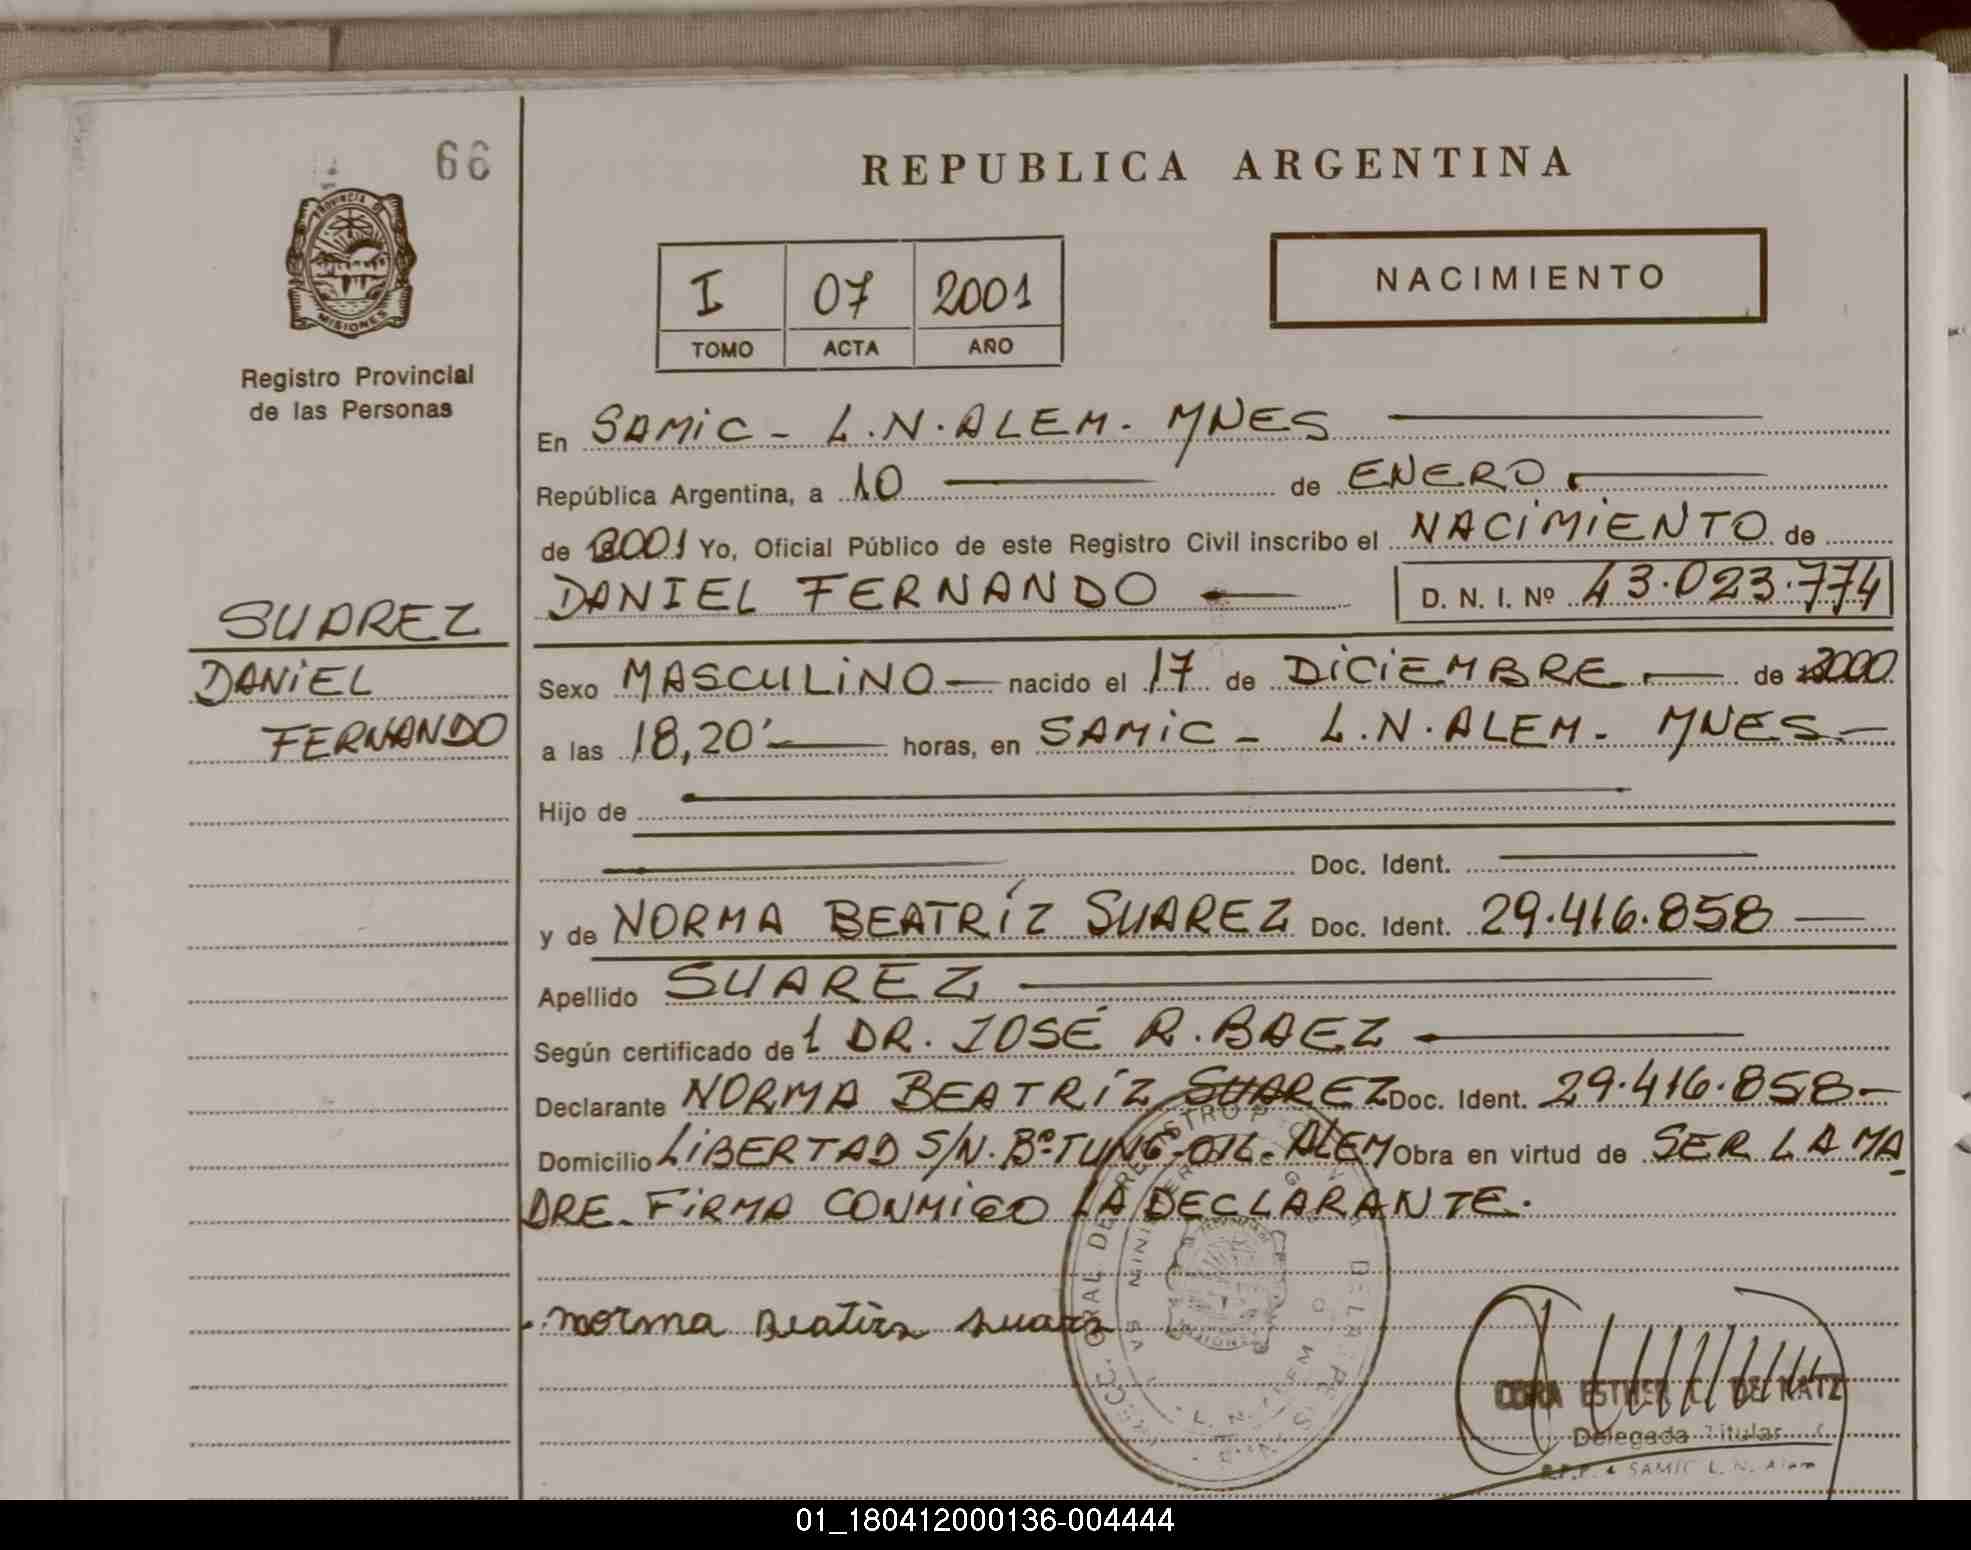 66
REPUBLICA ARGENTINA
PROVINCIA DE
MISIONES
I 07 2001
TOMO ACTA AÑO
NACIMIENTO
Registro Provincial
de las Personas
En SAMIC - L.N. ALEM. MNES
República Argentina, a 10 de ENERO
de 2001 Yo, Oficial Público de este Registro Civil inscribo el NACIMIENTO de
DANIEL FERNANDO D. N. I. Nº 43.023.774
SUAREZ
DANIEL
FERNANDO
Sexo MASCULINO nacido el 17 de DICIEMBRE de 2000
a las 18,20' horas, en SAMIC - L.N. ALEM. MNES.
Hijo de
Doc. Ident.
y de NORMA BEATRÍZ SUAREZ Doc. Ident. 29.416.858
Apellido SUAREZ
Según certificado de 1 DR. JOSÉ R. BAEZ
Declarante NORMA BEATRÍZ SUAREZ Doc. Ident. 29.416.858-
Domicilio LIBERTAD S/N. Bº TUNG-OIL. ALEM Obra en virtud de SER LA MA
DRE. FIRMA CONMIGO LA DECLARANTE.
norma Beatriz suarz
Delegada Titular
SAMIC L. N. Alem
01_180412000136-004444